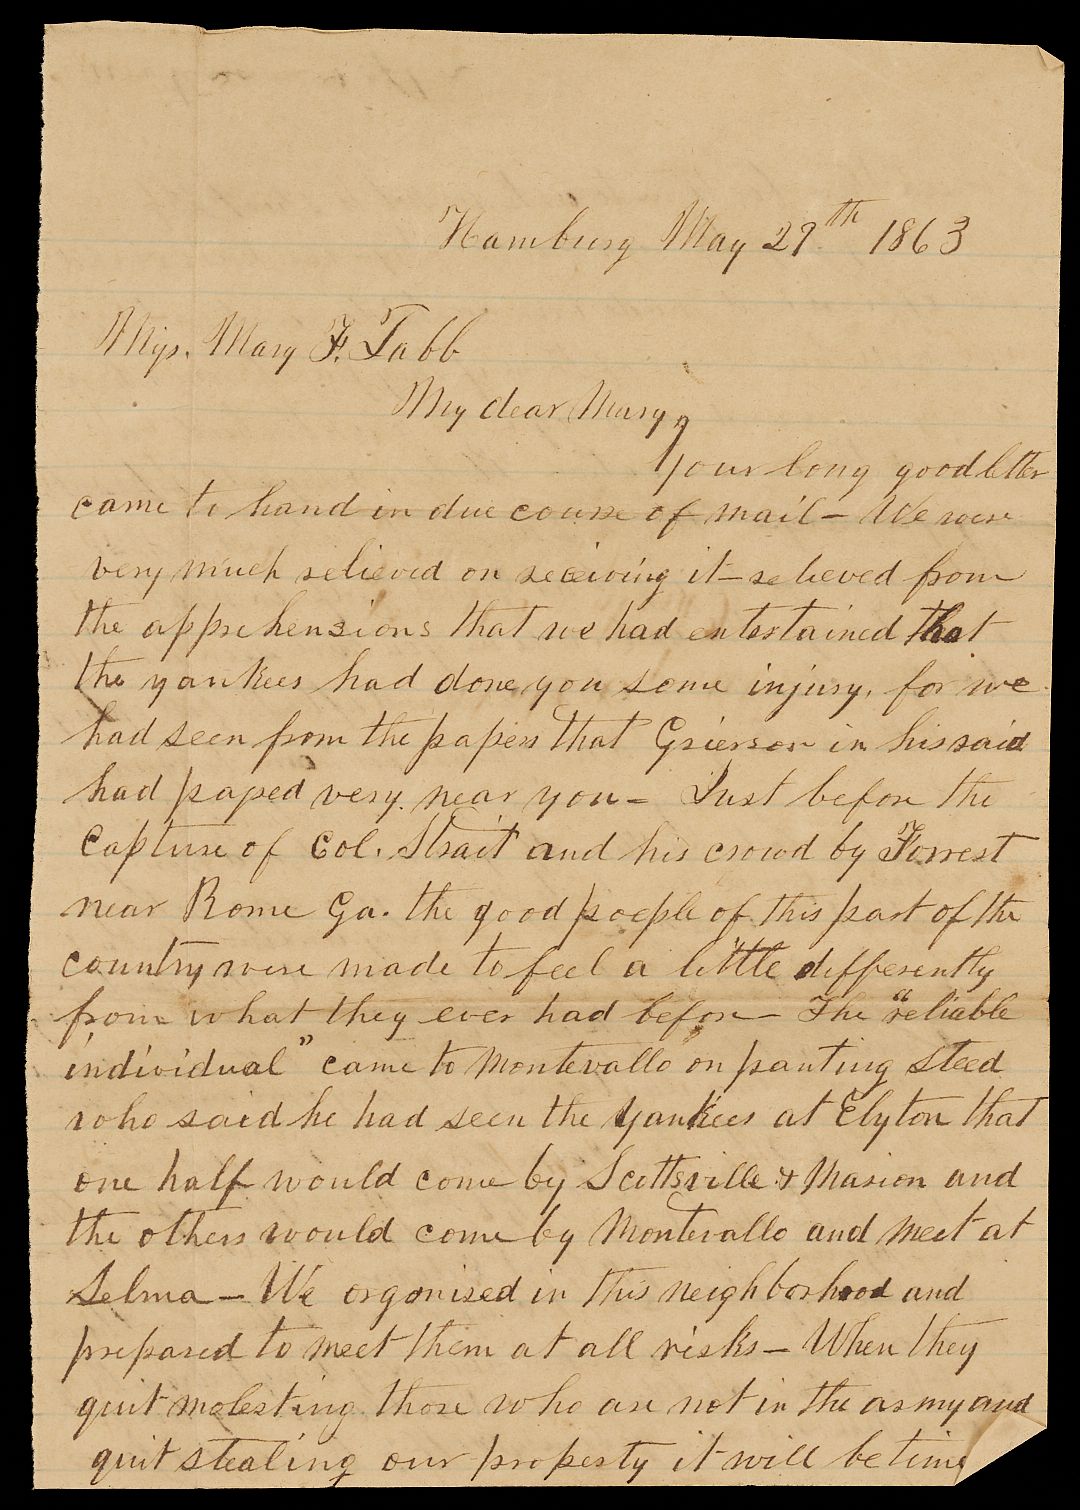 Hamburg May 29th 1863
Miss. Mary F. Tabb
My dear Mary,
Your long good letter
came to hand in due course of mail – We were
very much relieved on receiving it – relieved from
the apprehensions that we had entertained that
the yankees had done you some injury, for we
had seen from the papers that Grierson in his raid
had passed very near you – Just before the
Capture of Col. Strait and his crowd by Forrest
near Rome Ga. the good poeple of this part of the
country were made to feel a little differently
from what they ever had before – The "reliable
individual" came to Montevallo on panting steed
who said he had seen the yankees at Elyton that
one half would come by Scottsville & Marion and
the others would come by Montevallo and meet at
Selma – We organised in this neighborhood and
prepared to meet them at all risks – When they
quit molesting those who are not in the army and
quit stealing our property it will be time